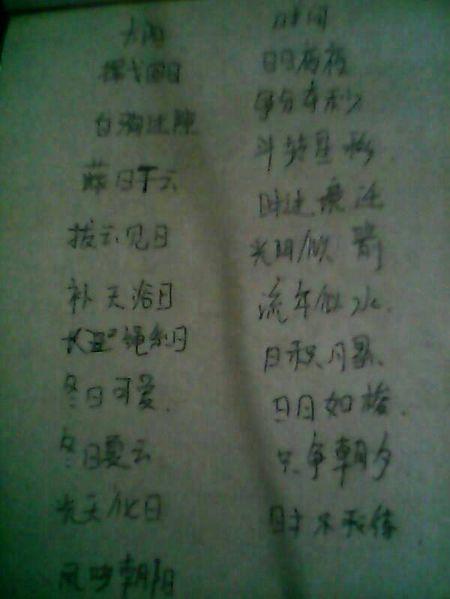 太阳
挥戈回日
白驹过隙
蔽日干云
拔云见日
补天浴日
长绳系日
冬日可爱
冬日夏云
光天化日
凤鸣朝阳
时间
争分夺秒
斗转星移
时过境迁
光阴似箭
流年似水
日积月累
日月如梭
只争朝夕
时不我待